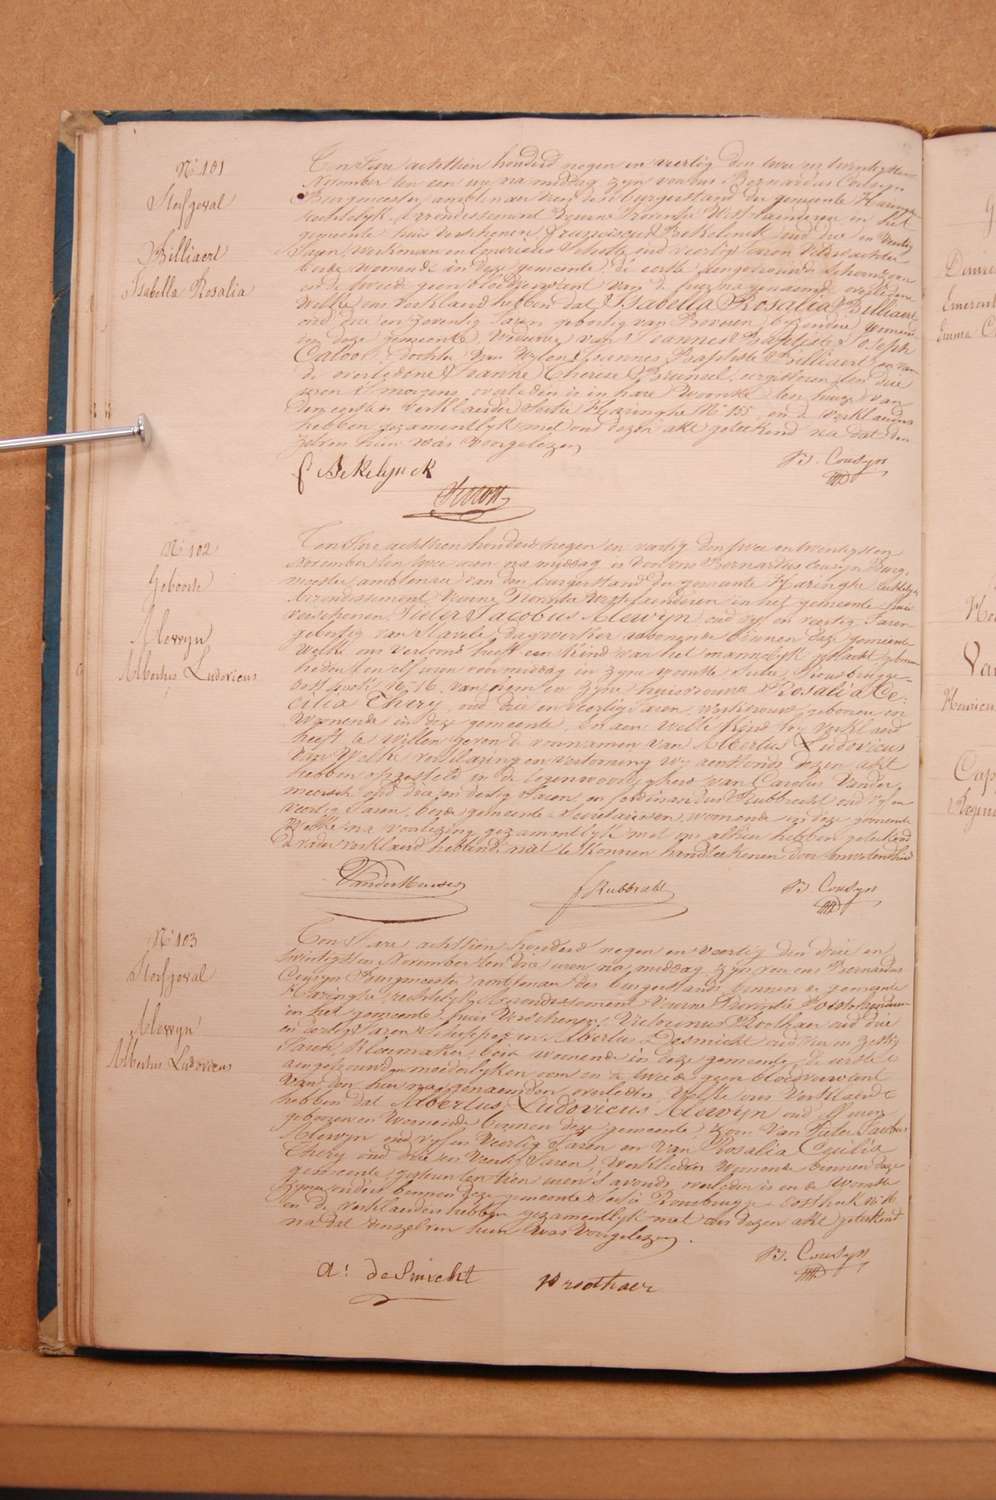 N° 101
Sterfgeval
Billiaert
Isabella Rosalia
Ten Jare achttien honderd negen en veertig den twee en twintigsten
November ten een ure na middag zyn voor ons Bernardus Cousyn
Burgmeester, ambtenaar van den burgerstand der gemeente Haringhe
rechtelyk Arrondissement Veurne Provintie Westvlaenderen in het
gemeente huis verschenen Franciscus Bekelynck oud drie en veertig
Jaren, werkman en
beide wonende in deze gemeente, de eerste aengetrouwde schoonzoon
en de tweede geen bloedverwant van de hierna genaemde overledene
Welke ons Verklaerd hebben dat Isabella Rosalia Billiaert
oud drie en zeventig Jaren geboortig van Beveren, byzondere wonende
in deze gemeente, Weduwe van Joannes Baptiste Joseph
Caloo, dochter van wylen Joannes Baptiste Billiaert en van
de overledene Joanne Therese Brunel, eergisteren ten drie
uren 's morgens overleden is in hare Woonste ten huize van
den eersten Verklaerder Sectie Haringhe N° 155, en de verklaerders
hebben gezamentlyk met ons dezen akt geteekend na dat den
zelven hun was voorgelezen
f Bekelynck
B. Cousyn
N° 102
Geboorte
Alewyn
Albertus Ludovicus
Ten Jare achttien honderd negen en veertig den twee en twintigsten
November ten twee uren na middag is voor ons Bernardus Cousyn Burg-
meester, ambtenaar van den burgerstand der gemeente Haringhe rechtelyk
Arrondissement Veurne Provintie Westvlaenderen in het gemeente huis
verschenen Pieter Jacobus Alewyn oud vyf en veertig Jaren
geboortig van Stavele, dagwerker woonende binnen deze gemeente
Welke ons vertoond heeft een kind van het mannelyk geslacht geboren
heden ten elf uren voor middag in zyne woonste Sectie Rousbrugge-
oosthoek N° 16, van hem en zyne huisvrouwe Rosalia Ce-
cilia Thery, oud drie en veertig Jaren, werkvrouw, geboren en
Wonende in deze gemeente. En aen welk kind hy verklaerd
heeft te willen geven de voornamen van Albertus Ludovicus
Van welke verklaring en vertooning wy aenstonds dezen akt
hebben opgesteld in de tegenwoordigheid van Carolus Vander
meersch oud drie en dertig Jaren en Ferdinandus Rubbrecht oud vyf en
veertig Jaren, beide gemeente Secretarissen, wonende in deze gemeente
Welke na voorlezing gezamentlyk met ons alhier hebben geteekend
de vader verklaerd hebbende niet te konnen handteekenen door onwetenheid
VanderMeersch
f Rubbrecht
B. Cousyn
N° 103
Sterfgeval
Alewyn
Albertus Ludovicus
Ten Jare achttien honderd negen en veertig den drie en
twintigsten November ten drie uren na middag, zyn voor ons Bernardus
Cousyn Burgmeester, ambtenaar des burgerstands binnen de gemeente
Haringhe, rechtelyk Arrondissement Veurne Provintie Westvlaenderen
in het gemeente huis Verschenen, Victorinus Proothaer oud drie
en dertig Jaren Schepper en Albertus Desmicht oud vier en zestig
Jaren, Kleermaker, beide wonende in deze gemeente, de eerste
aengetrouwden moederlyken oom en de tweede geen bloedverwant
Van den hier nagenaemden overleden, Welke ons Verklaerd
hebben dat Albertus Ludovicus Alewyn oud uren
geboren en wonende binnen deze gemeente, zoon van Pieter Jacobus
Alewyn oud vyf en veertig Jaren en van Rosalia Cecilia
Thery oud drie en veertig Jaren, werklieden wonende binnen deze
gemeente, gisteren ten tien uren 's avonds, overleden is in de Woonste
zyner ouders binnen deze gemeente Sectie Rousbrugge oosthoek N° 16
en de Verklaerders hebben gezamentlyk met ons dezen akt geteekend
na dat denzelven hun was voorgelezen.
B. Cousyn
A: deSmicht
V Proothaer